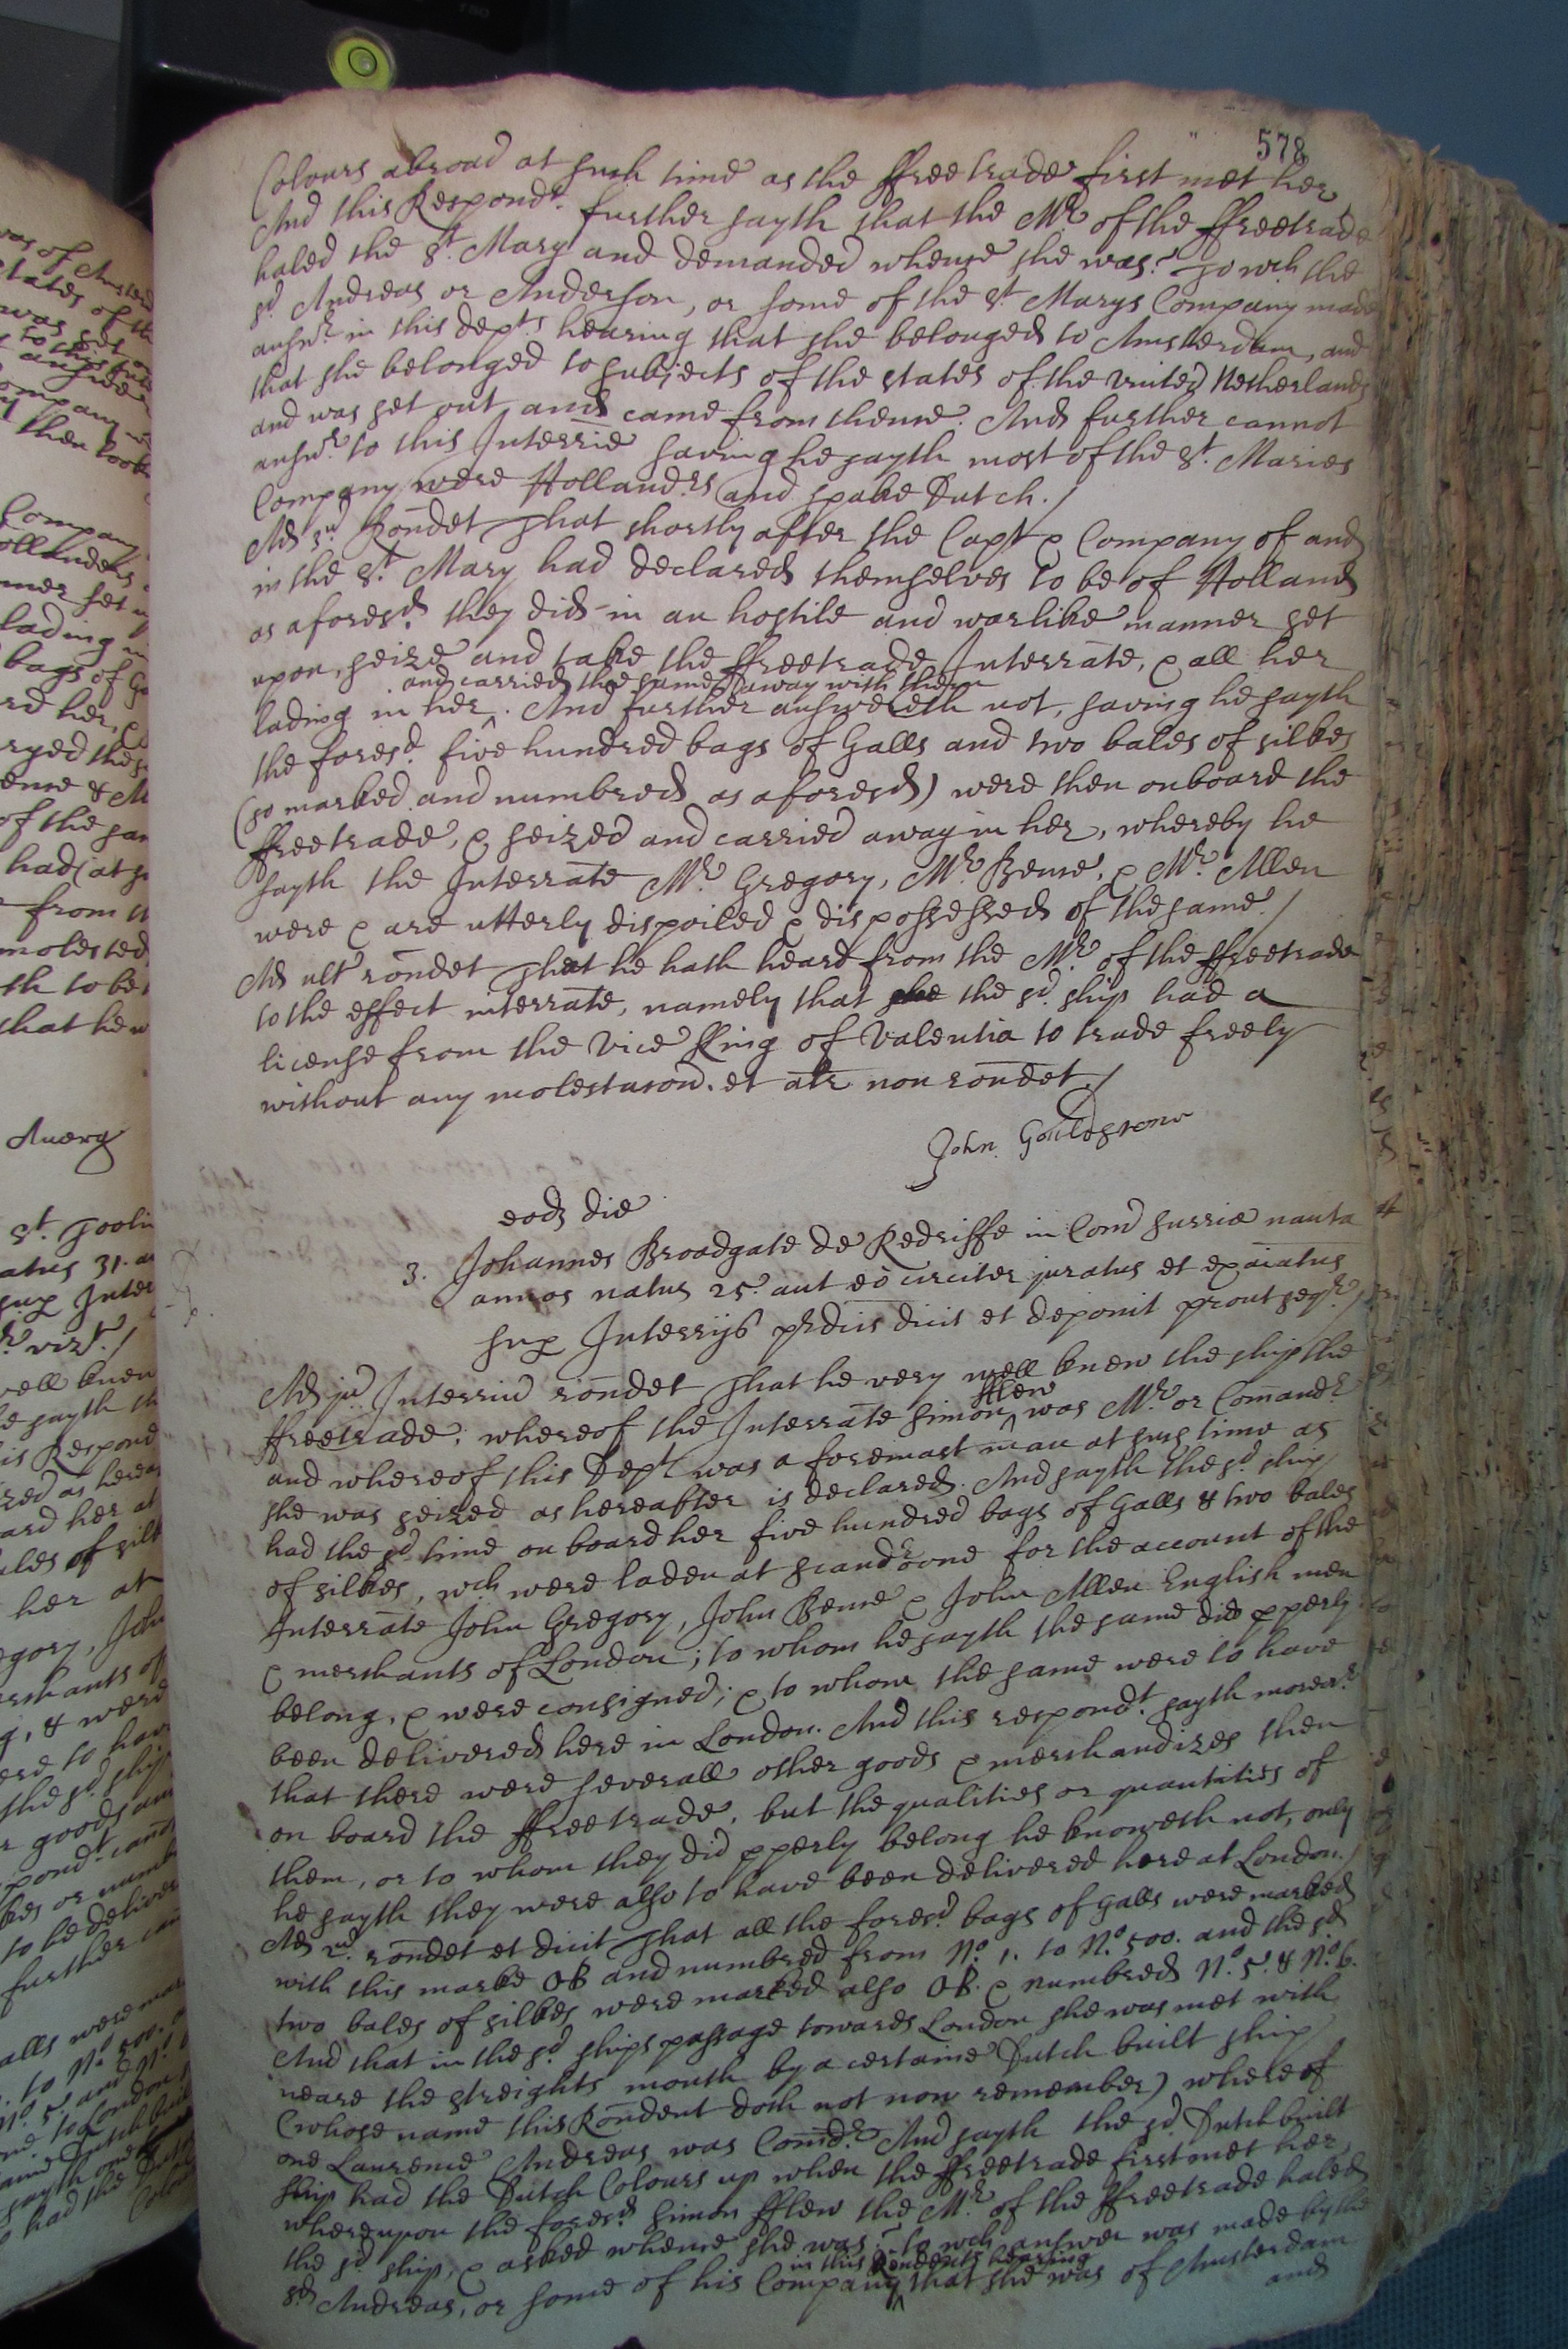 578
Colours abroad at such time as the ffreetrade first met her
And this Respondt. further sayth that the Mr. of the ffreetrade
haled the St. Mary and demanded whence she was? To wch the
sd. Andreas or Anderson, or some of the St. Marys Company made
answr. in this depts hearing that she belonged to Amsterdam, and
that she belonged to subjects of the states of the united Netherlands
and was set out and came from thence. And further cannot
answr. to this Interrie saving he sayth most of the St. Maries
Company were Hollandrs and spake Dutch./
Ad 3um Rondet That shortly after the Capt & Company of and
in the St. Mary had declared themselves to be of Holland
as aforesd. they did in an hostile and warlike manner set
upon, seize and take the ffreetrade Interrate, & all her
and carried the same away with them
lading in her ^. And further answereth not, saving he sayth
the foresd. five hundred bags of Galls and two bales of silkes
(so marked and numbred as aforesd) were then onboard the
ffreetrade, & seized and carried away in her, whereby he
sayth the Interrate Mr. Gregory, Mr. Bence, & Mr. Allen
were & are utterly dispoiled & dispossessed of the same./
Ad ult rondet That he hath heard from the Mr. of the ffreetrade
to the effect interrate, namely that the sd. ship had a
license from the Vice King of Valentia to trade freely
without any molestacon. et alr non rondet./
John Gouldstone
eodz die
3. Johannes Broadgate de Redriffe in Com Surriae nauta
annos natus 25. aut eo circiter juratus et exaiatus
sup Interrijs prdcis dicit et deponit prout seqr./
Ad jum Interrium rondet That he very well knew the ship the
fflew
ffreetrade, whereof the Interrate Simon ^ was Mr. or Comandr
and whereof this Dept was a foremast man at such time as
she was seized as hereafter is declared. And sayth the sd. ship
had the sd time on board her five hundred bags of Galls & two bales
of silkes, wch were laden at Scanderoone for the account of the
Interrate John Gregory, John Bence & John Allen English men
& merchants of London; to whom he sayth the same did pperly
belong, & were consigned; & to whom the same were to have
been delivered here in London. And this respondt. sayth moreovr
that there were severall other goods & merchandizes then
on board the ffreetrade, but the qualities or quantities of
them, or to whom they did pperly belong he knoweth not, only
he sayth they were also to have been delivered here at London./
Ad 2um. rondet et dicit That all the foresd. bags of Galls were marked
with this marke OB and numbred from No. 1. to No. 500. and the sd
two bales of silkes were marked also OB. & numbred No. 5. & No. 6.
And that in the sd. ships passage towards London she was met with
neare the streights mouth by a certaine Dutch built ship
(whose name this Rondent doth not now remember) whereof
one Laurence Andreas was Comdr. And sayth the sd. Dutch built
ship had the Dutch Colours up when the ffreetrade first met her
whereupon the foresd. Simon fflew the Mr. of the ffreetrade haled
the sd. ship, & asked whence she was? to wch answer was made by the
in this Rondents hearing
sd. Andreas, or some of his Company ^ that she was of Amsterdam
and